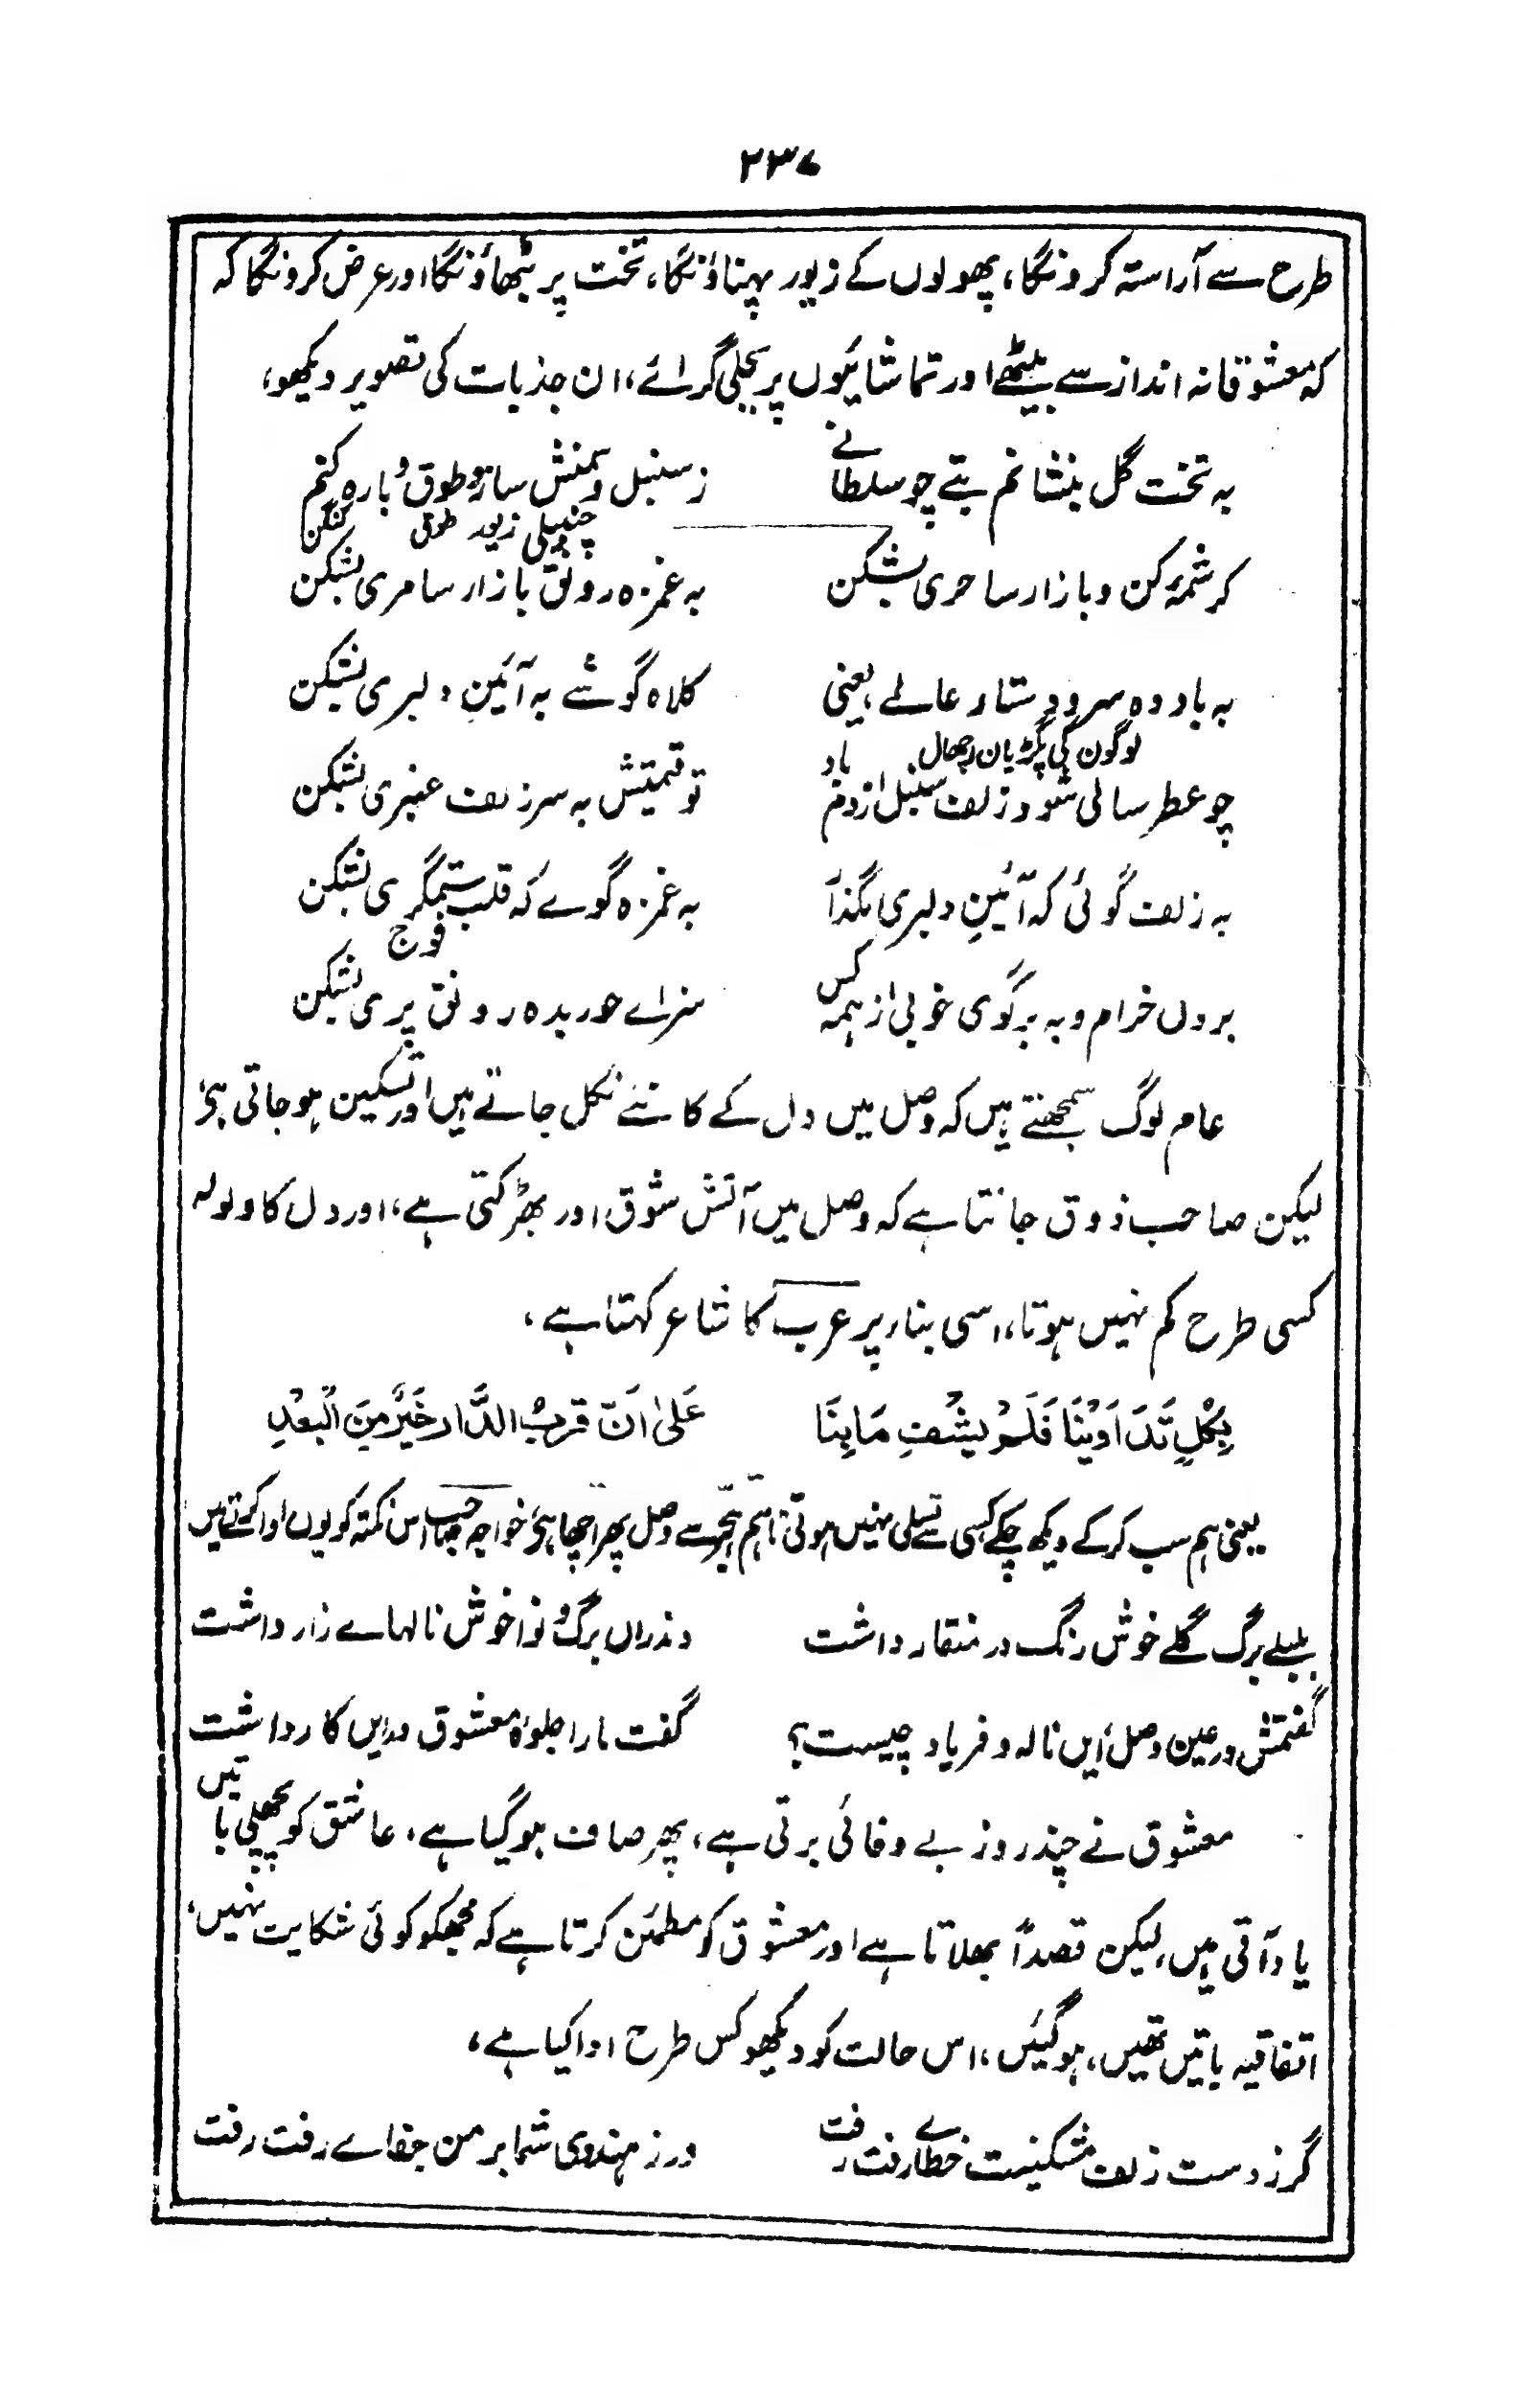 ۲۳۷
طرح سے آراستہ کرونگا، پھولوں کے زیور پہناؤنگا، تخت پر بٹھاؤنگا اور عرض کرونگا کہ
کہ معشوقانہ انداز سے بیٹھے اور تماشائیوں پر بجلی گرائے، ان جذبات کی تصویر دیکھو،
بہ تخت گل بنشانم بتے چو سلطانے زسنبل و سمنش ساز و طوق و بارہ کنم
چنبیلی زیور طوق کنگن
کرشمۂ کن و بازار ساحری بشکن بہ غمزہ رونق بازار سامری بشکن
بہ باد دہ سرو دستار عالمے، یعنی کلاہ گوشے بہ آئینِ دلبری بشکن
لوگون کی پگڑیان اچھال باد
چو عطر سالی شود زلف سنبل از دم تو قیمتیش بہ سر زلف عنبری بشکن
بہ زلف گوئی کہ آئینِ دلبری بگذآ بہ غمزہ گوے کہ قلب ستمگری بشکن
فوج
بردل خرام و بہ برگوی خوبی از ہمہ کس سزاے حور بدہ رونق پری بشکن
عام لوگ سمجھتے ہیں کہ وصل میں دل کے کانٹے نکل جاتے ہیں اور تسکین ہو جاتی ہی،
لیکن صاحب ذوق جانتا ہے کہ وصل میں آتش شوق اور بھڑکتی ہے، اور دل کا ولولہ
کسی طرح کم نہیں ہوتا، اسی بناء پر عرب کا شاعر کہتا ہے،
بِکُلٍ تَدَاوَیْنَا فَلَمْ یشْفِ مَا بِنَا عَلیٰ اَنَّ قربُ الدَّارِ خَیْرٌ مِنَ الْبُعْدِ
یعنی ہم سب کر کے دیکھ چکے کسی سے تسلی نہیں ہوتی، تاہم ہجر سے وصل پھر اچھا ہی، خواجہ صاحب اس نکتہ کو یوں ادا کرتے ہیں
بلبلے برگ گلے خوش رنگ در منقار داشت وندراں برگ و نوا خوش نالہاے زار داشت
گفتمش در عین وصل ایں نالہ و فریاد چیست؟ گفت مارا جلوۂ معشوق درایں کار داشت
معشوق نے چند روز بے وفائی برتی ہے، پھر صاف ہو گیا ہے، عاشق کو پچھلی باتیں
یاد آتی ہیں، لیکن قصداً بھلاتا ہے اور معشوق کو مطمئن کرتا ہے کہ مجھکو کوئی شکایت نہیں،
اتفاقیہ باتیں تھیں، ہو گئیں، اس حالت کو دیکھو کس طرح ادا کیا ہے،
گر ز دست زلف مشکینت خطاے رفت رفت ور ز ہندوی شما بر من جفاے رفت رفت